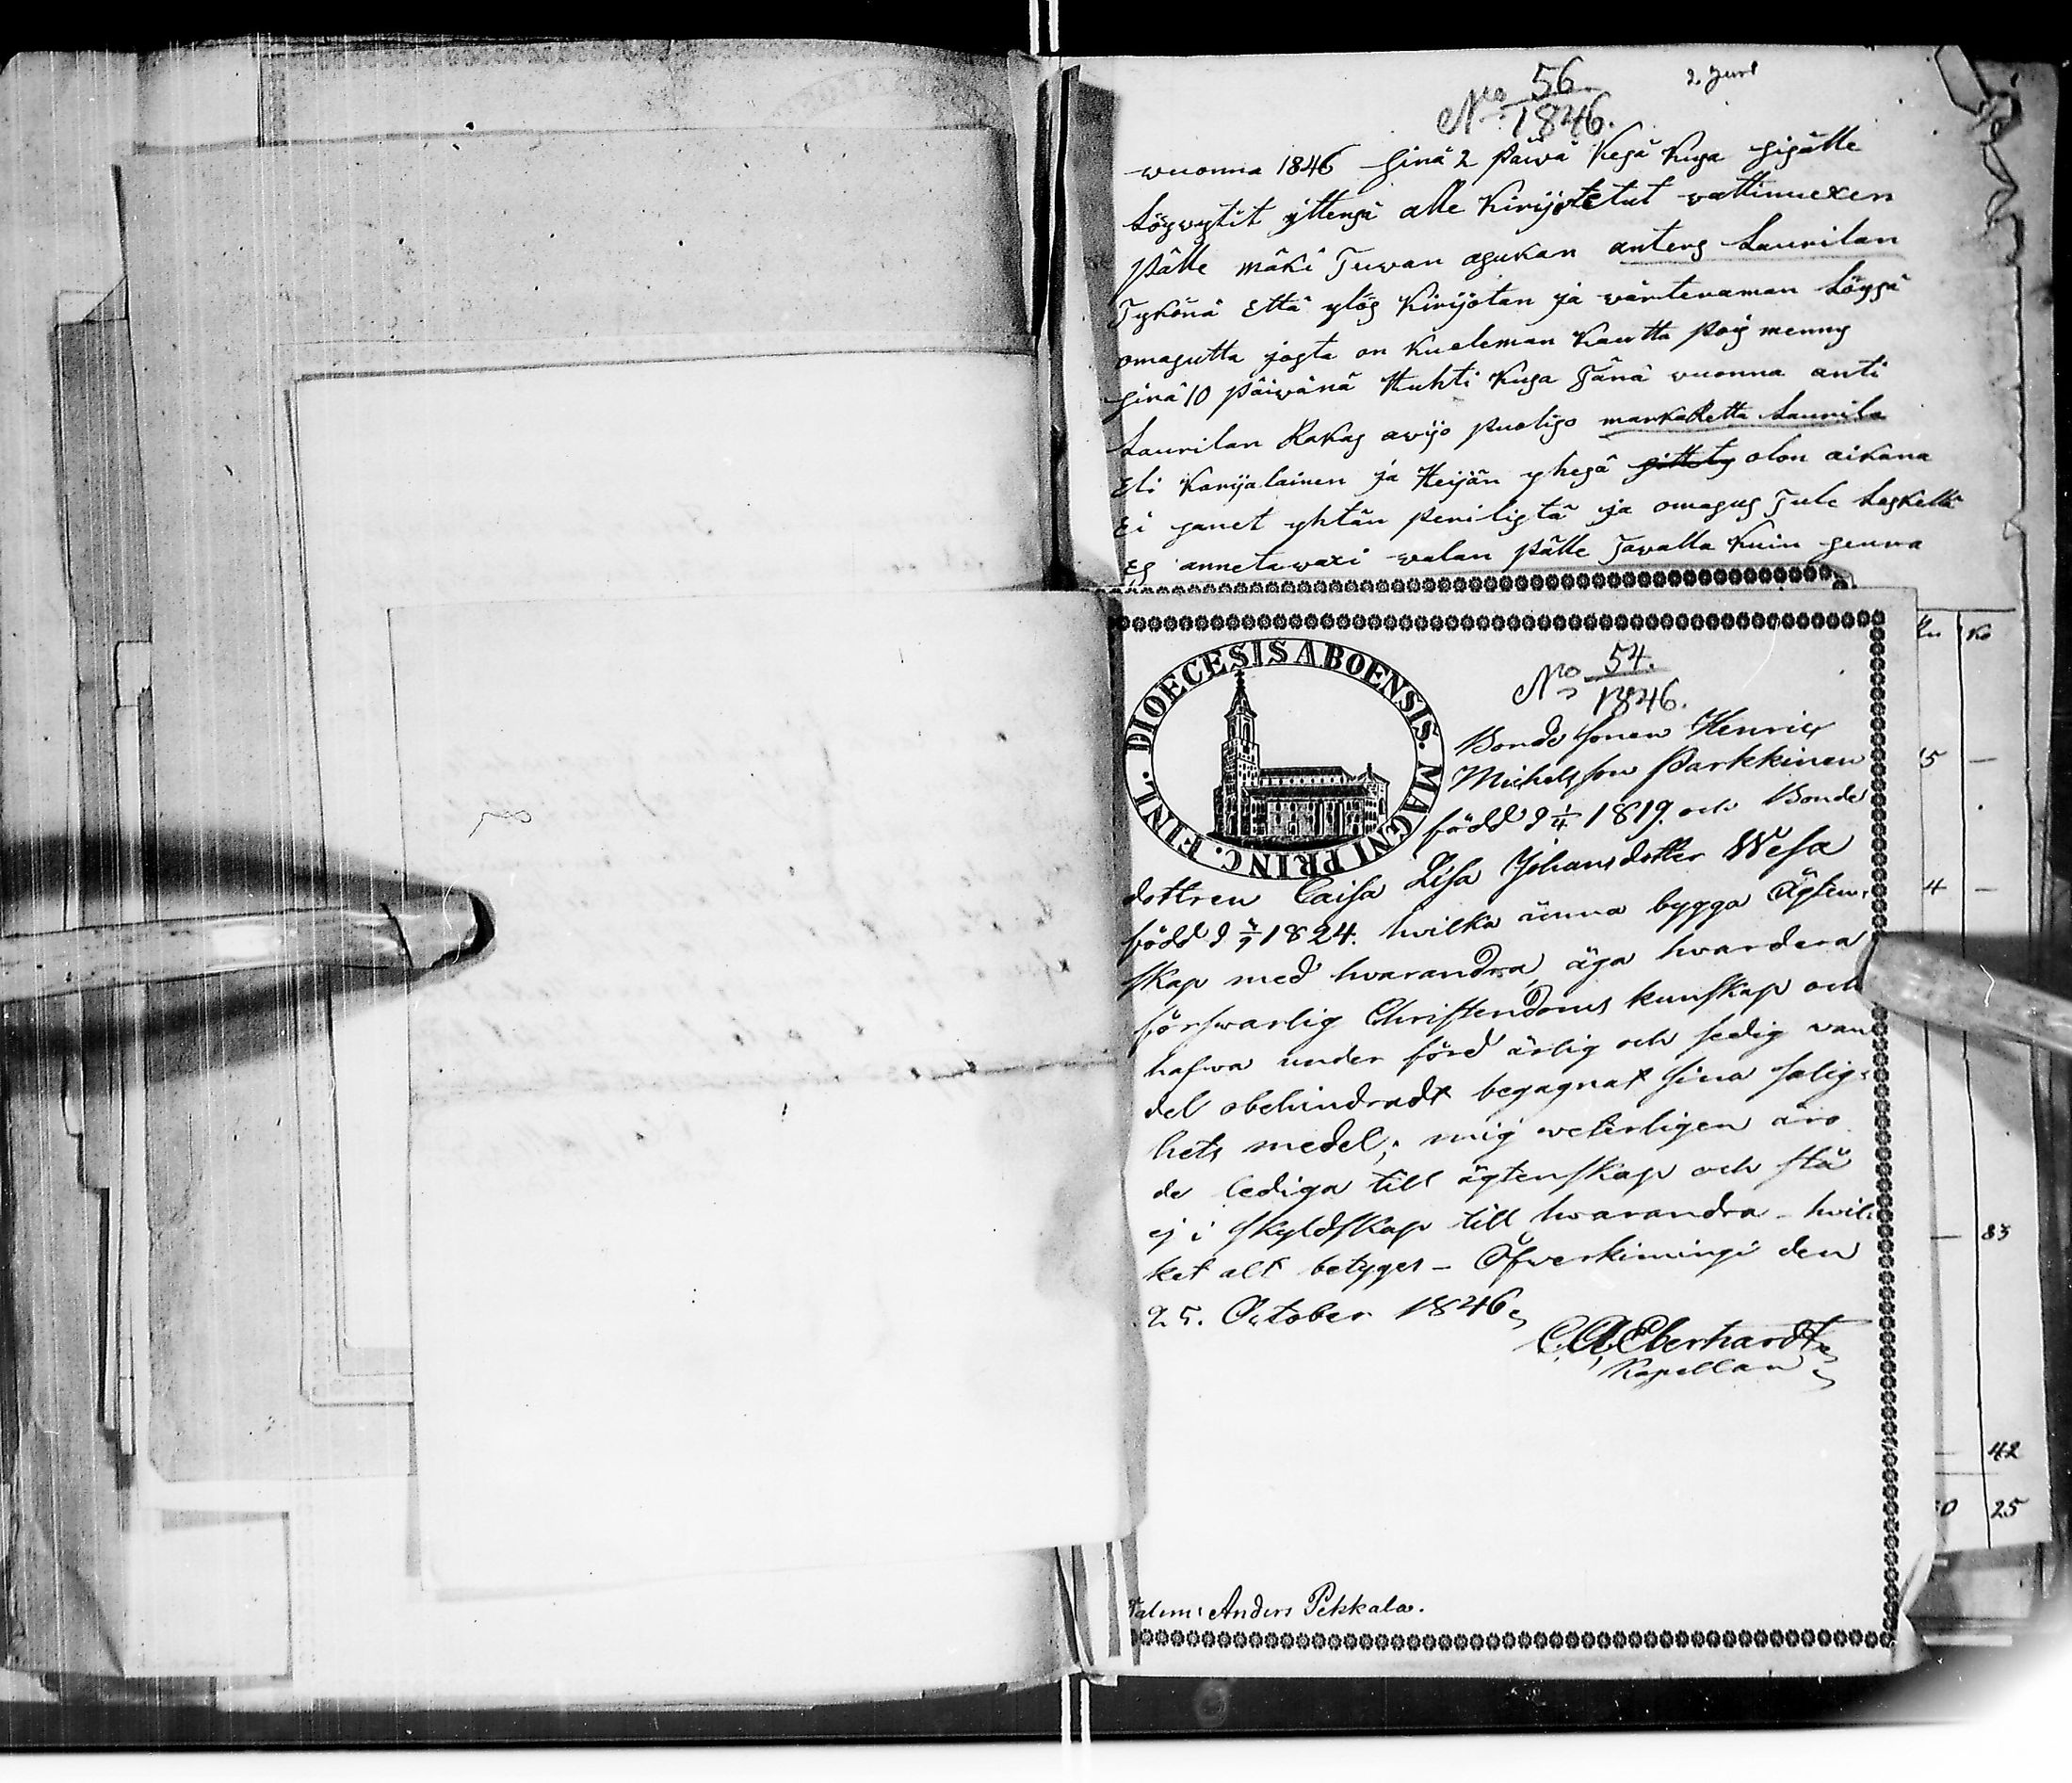 No 56
1846.
2. Juni
wuonna 1846 sinä 2 päiwä Kesä Kusa sisälle
Löswytit ittensä alle Kirijotetut wattimuexen
pälle mäki Tuwan asukan anters Laurilan
Tykönä Että ylös Kirijotan ja wärteraman Löysä
omasutta josta on Kueleman Kautta pois menny
sinä 10 päiwänä Huhti Kusa Tänä wuonna anti
Laurilan Rakas awijo puoliso markaketta Laurila
Eli Karijalainen ja Heijän yhesä olon aikana
Ei sanet yhtän perilistä ja omasus Tule Leskeltä
Es annetawaxi walan pälle Tawalla Kuin seuwa
DIOECESIS ABOENSIS. MAGNI PRINC. FINL.
No 54.
1846.
Bonde sonen Henric
Michelsson Parkkinen
född d 1/4 1819. och Bonde
dottren Caisa Lisa Johansdotter Wesa
född d 1824. hvilka ämna bygga Ägten-
skap med hvarandra, äga hvardera
försvarlig Christendoms kunskap och
hafwa under förd ärlig och sedig van
del obehindradt begagnat sina salig-
hets medel; mig veterligen äro
de lediga till ägtenskap och stå
ej i skyldskap till hvarandra - hvil-
ket alt betyges - Öfwerkimingi den
25. October 1846.
C. A. Eberhardt
Kapellan
Talem: Anders Pekkala.
Ko
5 —
4 —
— 83
— 42
0 25